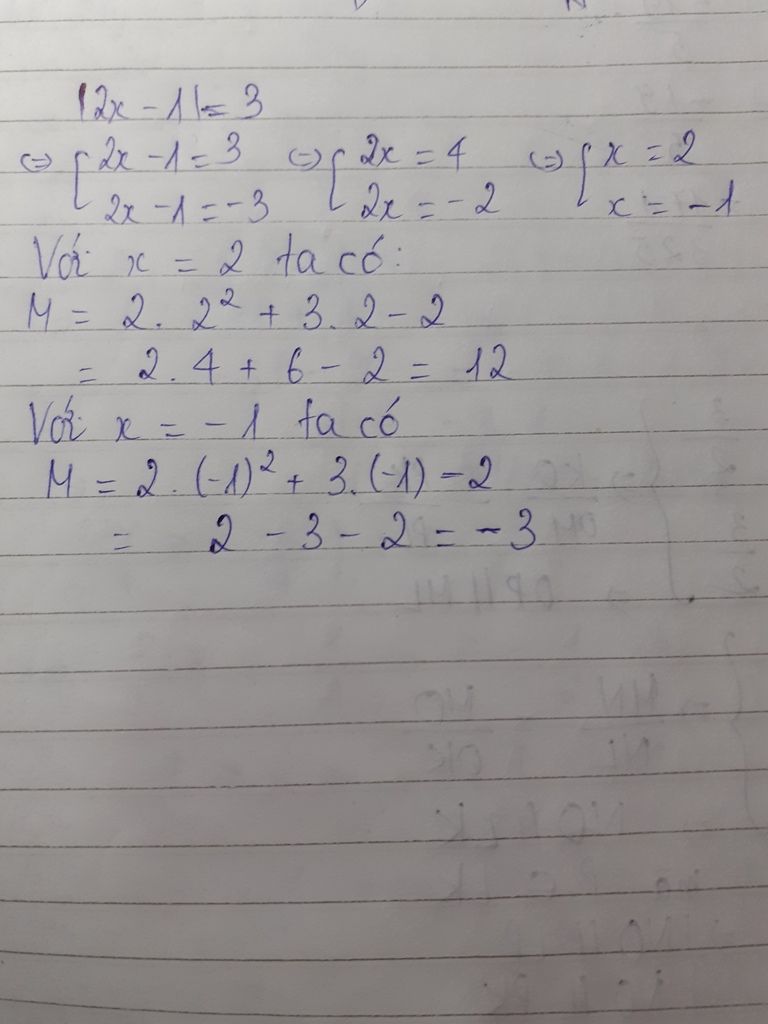 |2x - 1| = 3
⇔ { 2x - 1 = 3 ⇔ { 2x = 4 ⇔ { x = 2
2x - 1 = -3 2x = -2 x = -1
Với x = 2 ta có:
M = 2. 2² + 3. 2 - 2
= 2. 4 + 6 - 2 = 12
Với x = -1 ta có
M = 2. (-1)² + 3. (-1) - 2
= 2 - 3 - 2 = -3